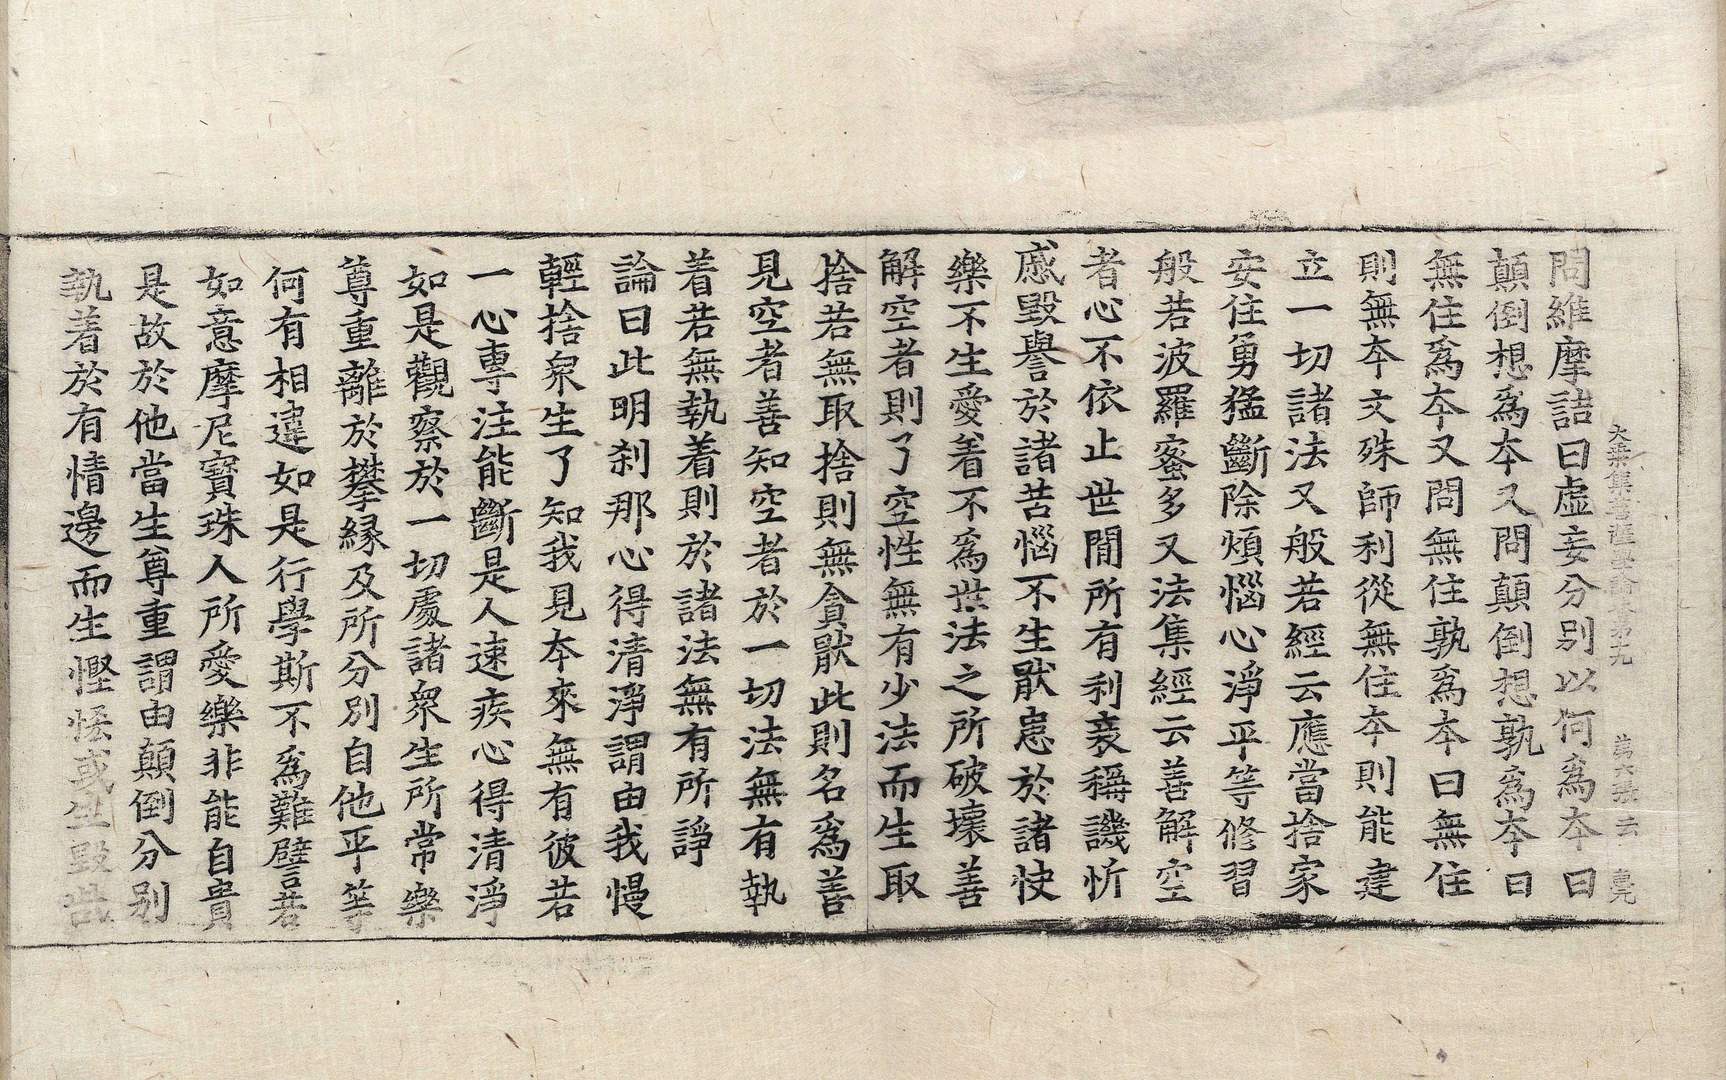 大乘集菩薩學論卷第九 第六張 云
問維摩詰曰虛妄分别以何爲本曰
顛倒想爲本又問顛倒想孰爲本曰
無住爲本又問無住孰爲本曰無住
則無本文殊師利從無住本則能建
立一切諸法又般若經云應當捨家
安住勇猛斷除煩惱心淨平等修習
般若波羅蜜多又法集經云善解空
者心不依止世間所有利衰稱譏忻
慼毀譽於諸苦惱不生猒患於諸快
樂不生愛著不爲世法之所破壞善
解空者則了空性無有少法而生取
捨若無取捨則無貪猒此則名爲善
見空者善知空者於一切法無有執
着若無執着則於諸法無有所諍
論曰此明刹那心得清淨謂由我慢
輕捨衆生了知我見本來無有彼若
一心專注能斷是人速疾心得清淨
如是觀察於一切處諸衆生所常樂
尊重離於攀緣及所分別自他平等
何有相違如是行學斯不爲難譬若
如意摩尼寶珠人所愛樂非能自貴
是故於他當生尊重謂由顛倒分别
執着於有情邊而生慳恡或生毀呰